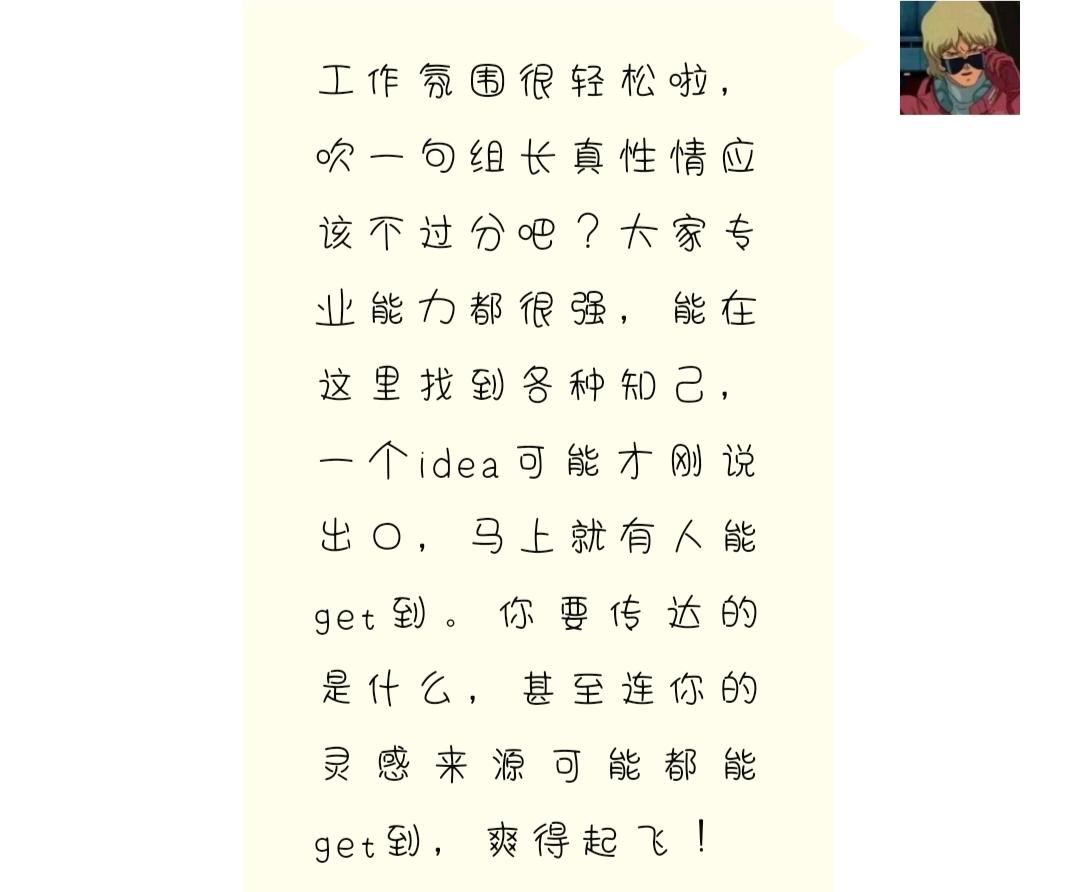 工作氛围很轻松啦，
吹一句组长真性情应
该不过分吧？大家专
业能力都很强，能在
这里找到各种知己，
一个idea可能才刚说
出口，马上就有人能
get到。你要传达的
是什么，甚至连你的
灵感来源可能都能
get到，爽得起飞！